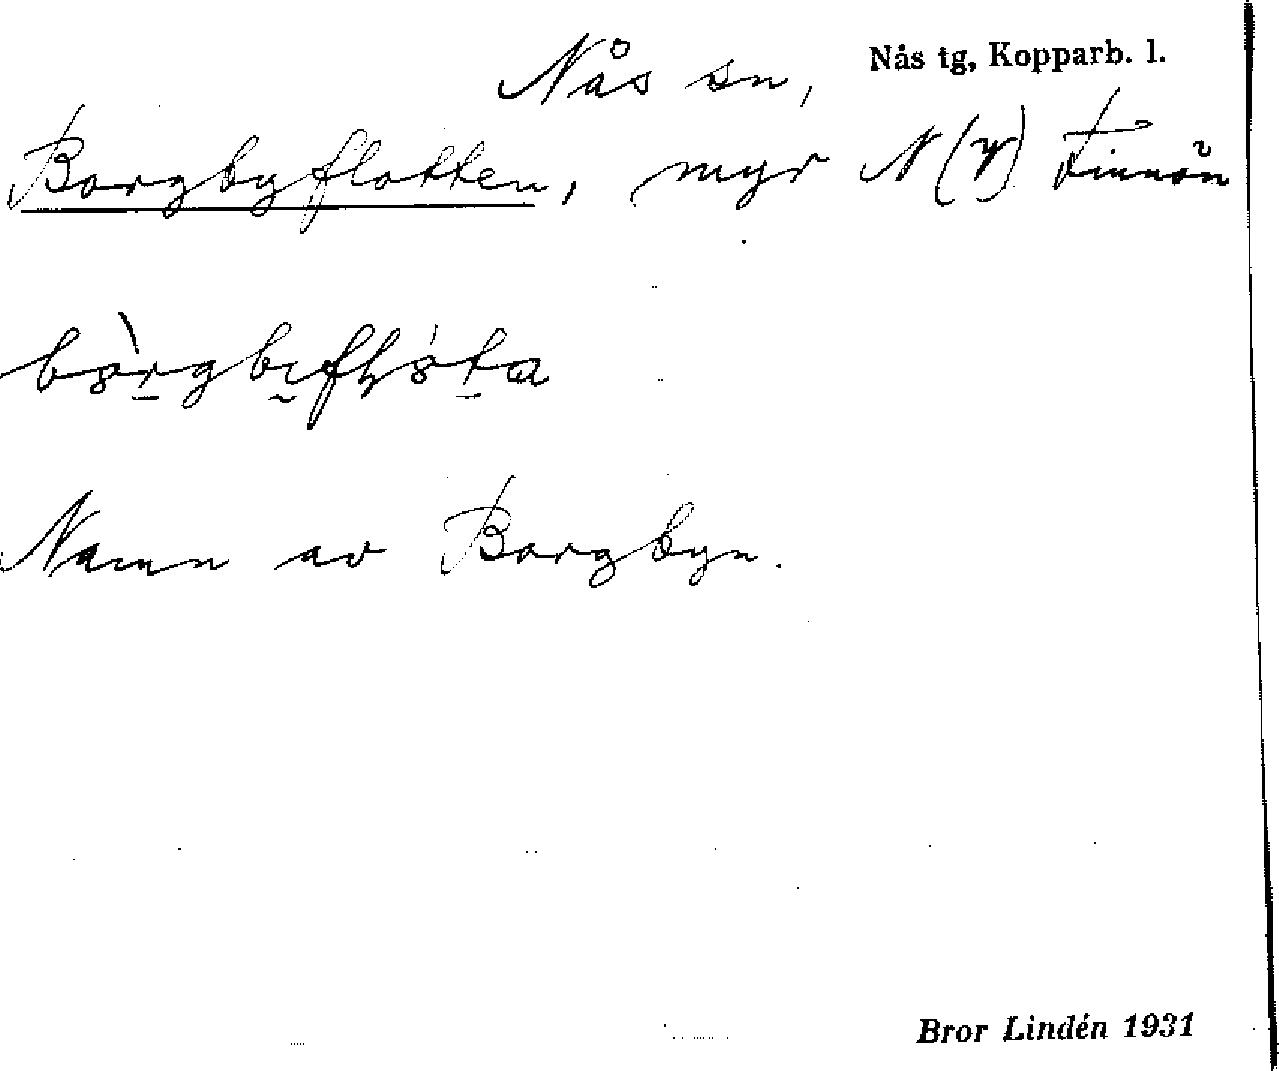 Nås sn, Nås tg, Kopparb. l.
Borgbyflotten, myr N (V) Finnön
Namn av Borgbyn.
Bror Lindén 1931